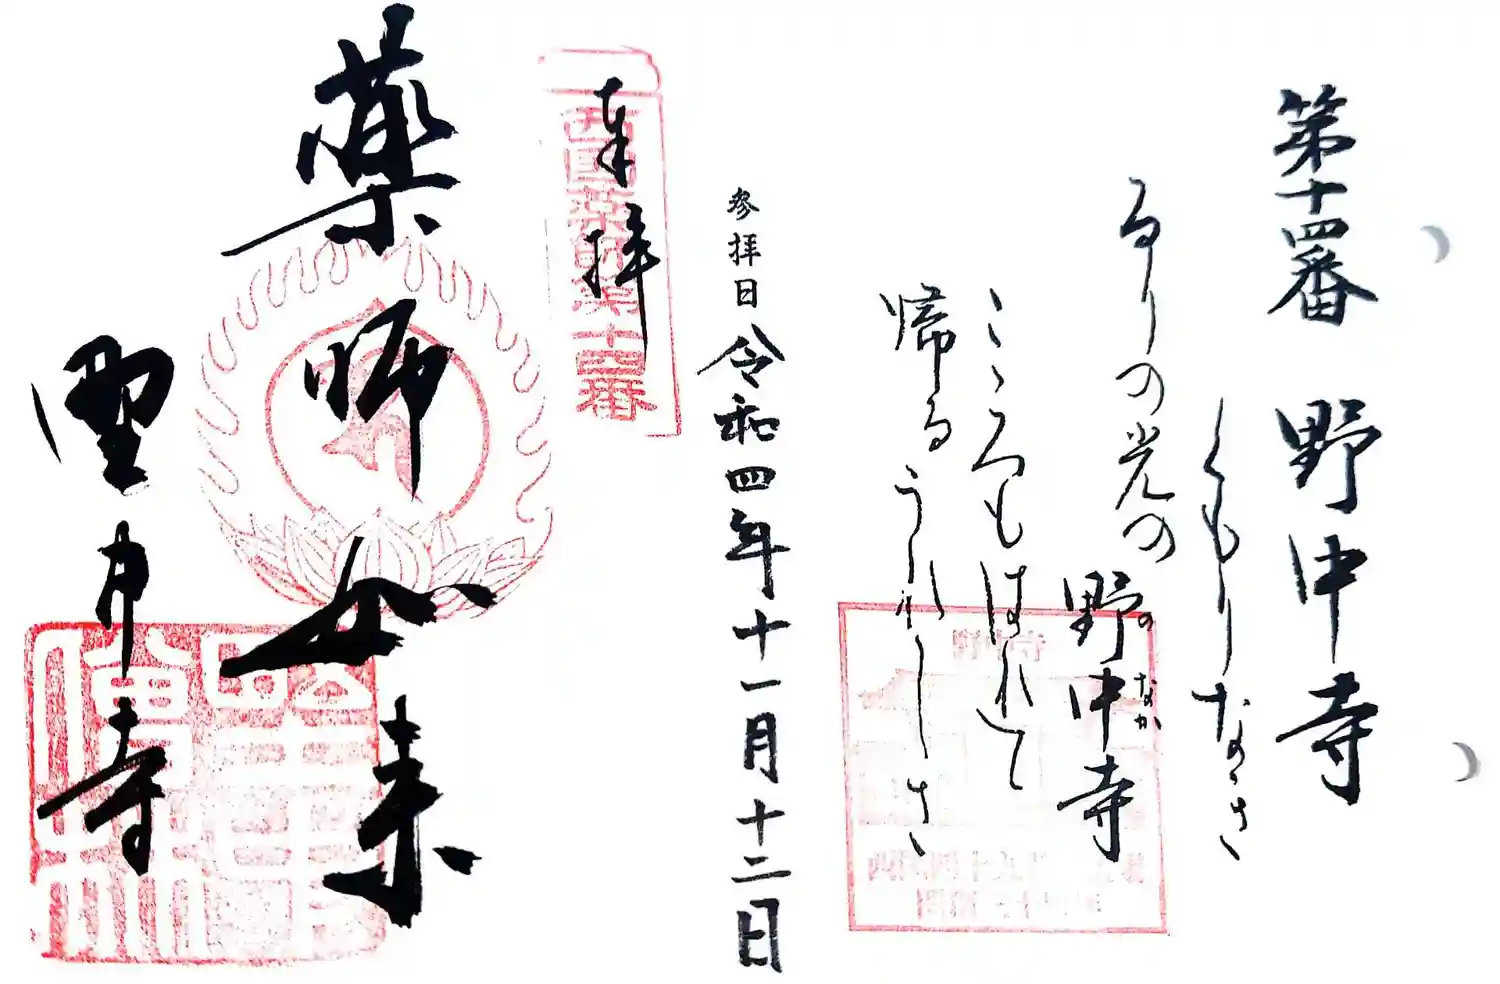 第十四番 野中寺
くもりなき
るりの光の野中寺
のなか
こゝろもはれて
帰るうれしさ
参拝日令和四年十一月十二日
奉拝
西国薬師第十四番
薬師如来
野中寺